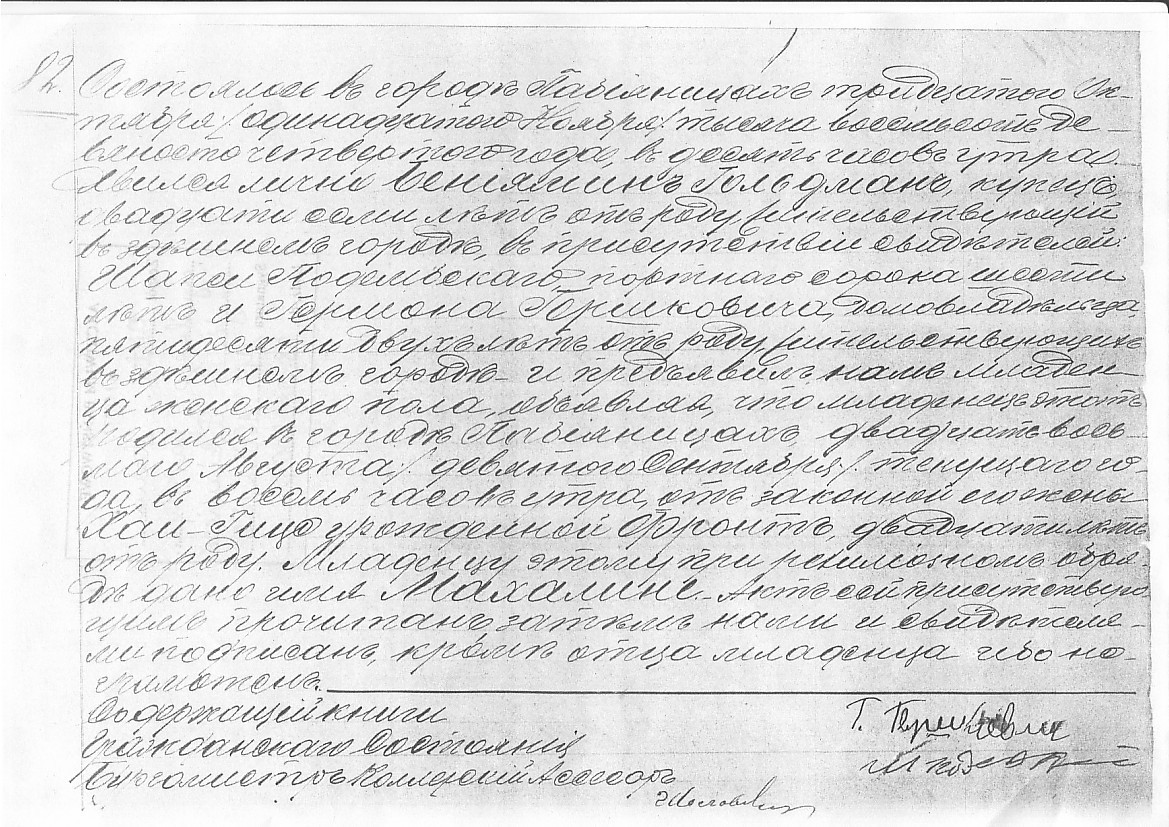 82.
Состоялось въ городѣ Пабіяницахъ тридцатого Ок-
тября / одинадцатого Ноября / тысяча восемьсотъ де-
вяносто четвертого года, въ десять часовъ утра
явился лично Беніяминъ Гольдманъ, купецъ,
двадцати семи лѣтъ отъ роду, жительствующій
въ здѣшнемъ городѣ, въ присутствіи свидѣтелей:
Шапси Подемскаго, портнаго сорока шести
лѣтъ и Гермона Гершковича, домовладѣльца
пятидесяти двухъ лѣтъ отъ роду, жительствующихъ
въ здѣшномъ городѣ - и предъявилъ намъ младен-
ца женскаго пола, объявляя, что младенецъ этотъ
родился въ городѣ Пабіяницахъ, двадцать вось-
маго Августа / девятого Сентября / текущаго го-
да, въ восемь часовъ утра, отъ законной его жены
Хаи-Гицо урожденной Фронтъ, двадцати лѣтъ
отъ роду. Младенцу этому при религіозномъ обря-
дѣ дано имя Махалине. Актъ сей присутствую-
щимъ прочитанъ, затѣмъ нами и свидѣтеля-
ми подписанъ, кромѣ отца младенца ибо не-
грамотенъ.
Содержащій книги
Гражданскаго Состоянія
Бургомистръ Коллежскій Ассесоръ
Г. Гершковичъ